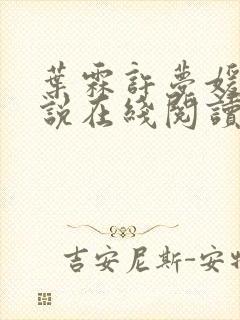 葉霖許夢媛
說在綫閱讀
吉安尼斯-安特